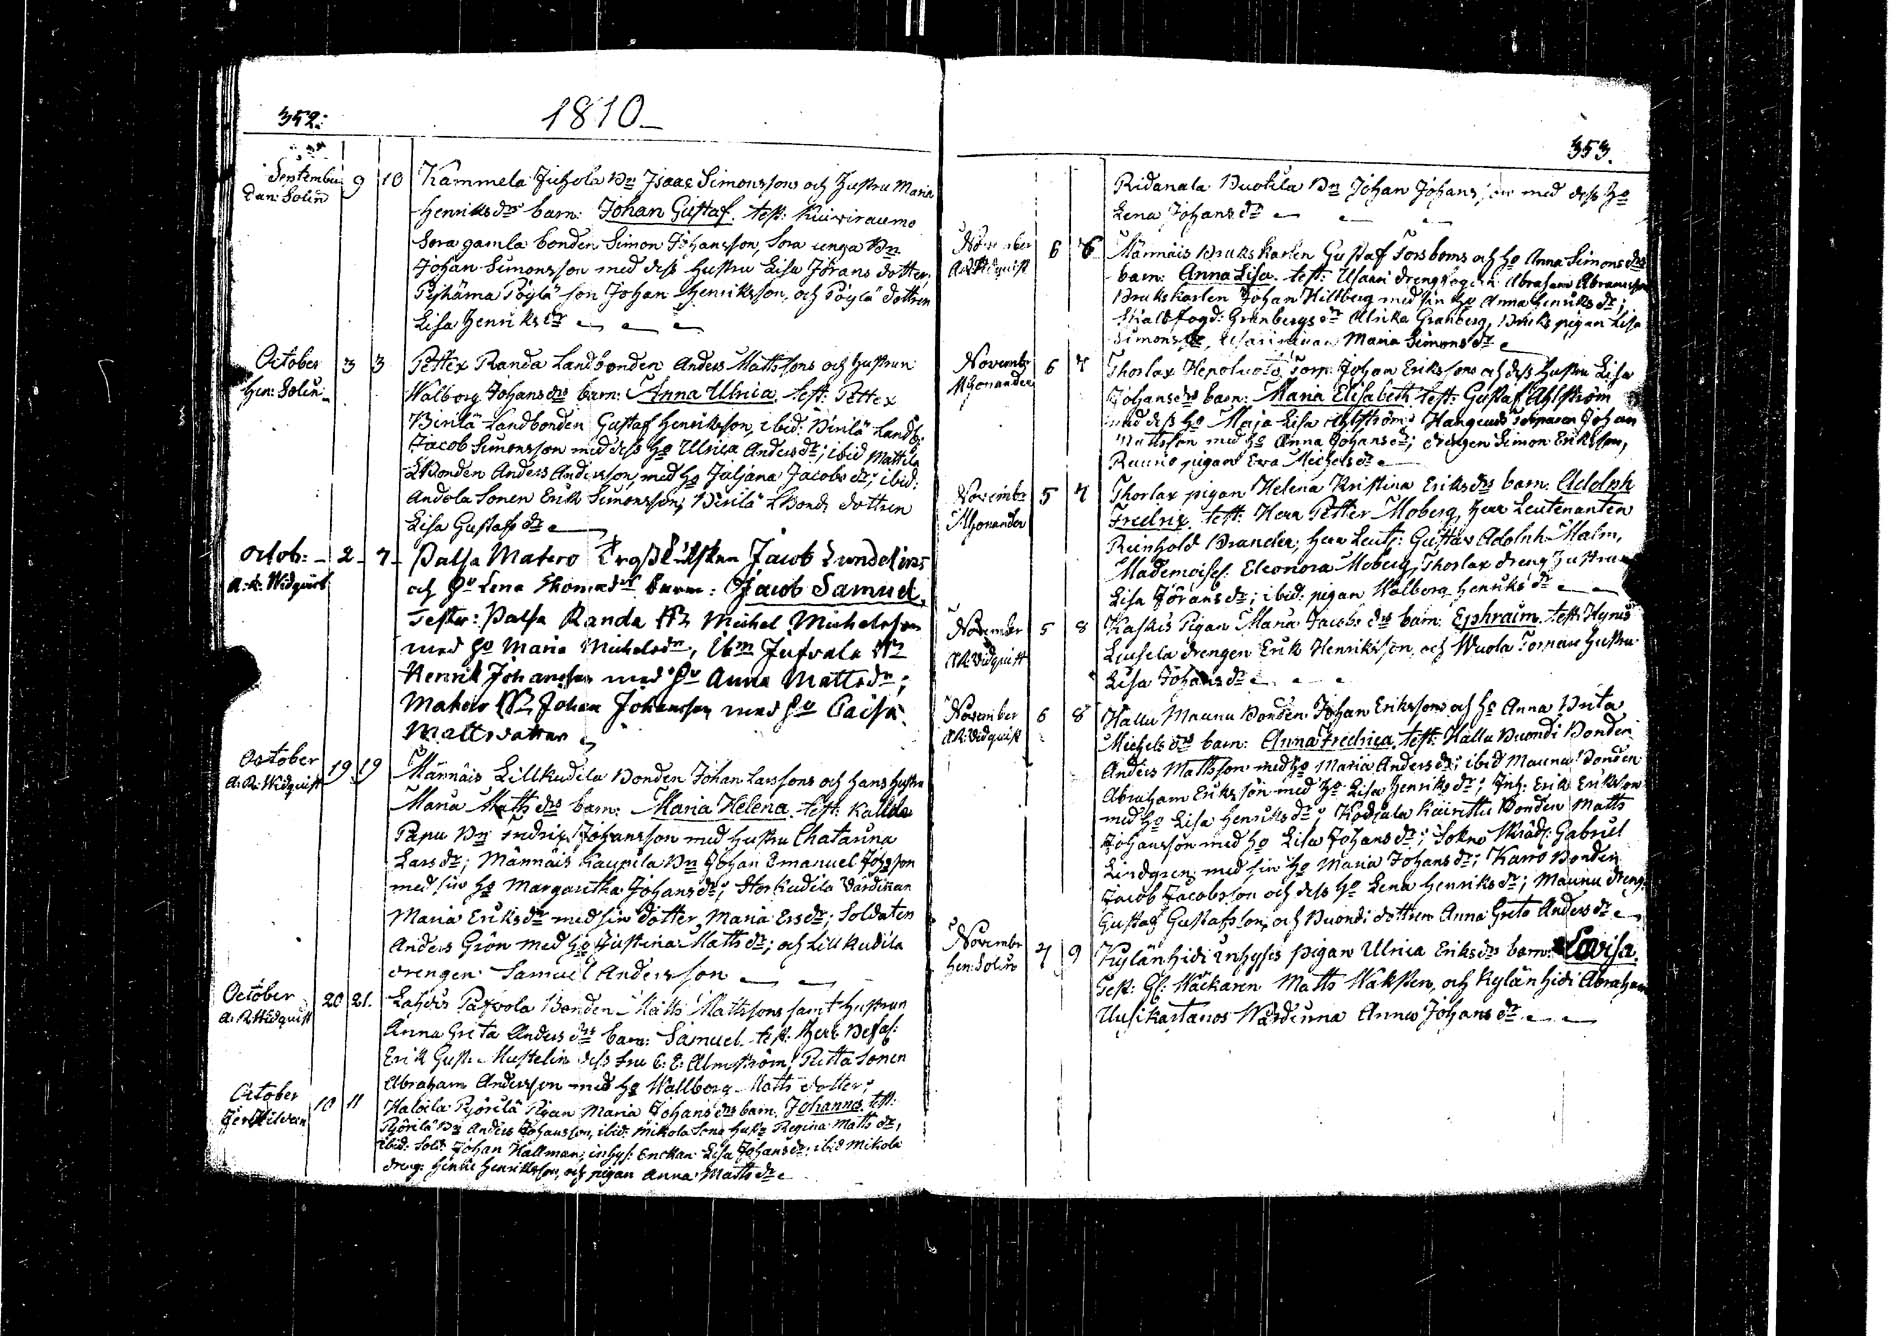 352:
1810
September 9 10 Kammela Juhola Bn Isaac Simonssons och Hustru Maria
Dan: Solin
Henriksdrs barn: Johan Gustaf. test:
Sora gamla bonden Simon Johansson, Sora unga Bn
Johan Simonsson med dess hustru Lisa Jörans dotter;
Pöylä son Johan Henriksson, och Pöylä dottren
Lisa Henriksdr
October 3 3 Pettex Randa Landbonden Anders Mattssons och hustrun
Hen: Solin
Walborg Johansdrs barn: Anna Ulrica. test: Pettex
Landbonden Gustaf Henriksson, ibid: Landb:
Jacob Simonsson med dess Ho Ulrica Andersdr; ibid Mattila
Anders Andersson, med Ho Juljana Jacobsdr; ibid:
Andola Sonen Erik Simonsson, dottren
Lisa Gustafsdr
Octob: 2 7 Palsa Matero Jacob Lundelins
A. R. Widquist
och Ho Lena Thomasdrs barn: Jacob Samuel,
Testes: Palsa Randa Bn Michel Michelsson
med Ho Maria Michelsdr, Ibm Jufvala Bn
Henrik Johansson med Ho Anna Mattsdr;
Matero Bn Johan Johansson med Ho Caisa
Mattsdotter
October 19 19 Männäis Lillkudila Bonden Johan Larssons och hans hustru
A: R: Widquist
Maria Mattsdrs barn: Maria Helena. test:
Papu Bn Fredrix Johansson med hustru Chatarina
Larsdr; Männäis Kaupila Bn Johan Emanuel Johsson
med sin Ho Margaretha Johansdr; Storkudila Värdinnan
Maria Eriksdr med sin dotter Maria Ersdr; Soldaten
Anders Grön med Ho Justina Mattsdr; och Lillkudila
drengen Samuel Andersson
October 20 21. Lahdis Pafvola Bonden Matts Mattssons samt hustrun
A: R Widquist
Anna Greta Andersdrs barn: Samuel. test:
Erik Gust: Mustelin dess fru C: E: Almström, sonen
Abraham Andersson med Ho Wallborg Matts dotter;
October 10 11 Haloila Pyörilä Pigan Maria Johansdrs barn. Johannes. test:
Pyörilä Bn Anders Johansson, ibid: Mikola Regina Mattsdr,
ibid: Sold: Johan Hallman; inhys: Enckan Lisa Johansdr; ibid Mikola
dreng: Henric Henriksson, och pigan Anna Mattsdr
353.
Ridanala Bn Johan Johansson med dess Ho
Lena Johansdr
November 6 6 Männäis Brukskarlen Gustaf Forsboms och Ho Anna Simonsdrs
A R Widquist
barn: Anna Lisa. test: Abraham Abramsson
Brukskarlen Johan Hillberg med sin Ho Anna Henriksdr;
Granbergs dr Ulrika Granberg, Bruks pigan Lisa
Simonsdr, Maria Simonsdr
November 6 7 Thorlax Torp: Johan Erikssons och dess Hustru Lisa
M Gonander
Johansdrs barn: Maria Elisabeth. test: Gustaf Ahlström
med dess Ho Maja Lisa Ahlström: Torparen Johan
Mattsson med Ho Anna Johansdr; drengen Simon Eriksson,
pigan Eva Michelsdr
November 5 7 Thorlax pigan Helena Kristina Eriksdrs barn. Adolph
M Gonander
Fredrix. test: Herr Petter Moberg, Herr Leutenanten
Reinhold Brander, Herr Leut: Gustav Adolph Malm,
Mademoisel: Eleonora Moberg, Thorlax dreng Hustrun
Lisa Jöransdr; ibid: pigan Walborg Henriksdr
November 5 8 Kaskis Pigan Maria Jacobsdrs barn: Ephraim. test:
A R Widquist
drengen Erik Henriksson, och Wuola Tornare hustru
Lisa Johansdr
November 6 8 Hallu Maunu Bonden Johan Erikssons och Ho Anna Brita
A R Widquist
Michelsdrs barn: Anna Fredrica. test: Hallu Buondi Bonden
Anders Mattsson med Ho Maria Andersdr; ibid Maunu Bonden
Abraham Eriksson med Ho Lisa Henriksdr; Erik Eriksson
med Ho Lisa Henriksdr; Bonden Matts
Johansson med Ho Lisa Johansdr; Gabriel
Lindgren med sin Ho Maria Johansdr; Karro Bonden
Jacob Jacobsson och dess Ho Lena Henriksdr; Maunu dreng
Gustaf Gustafsson, och Buondi dottren Anna Greta Andersdr
November 7 9 Kylänhidi inhyses pigan Ulrica Eriksdrs barn: Lovisa.
Hen: Solin
Test: Matts och Kylänhidi Abraham
Uusikartanos Wärdinna Anna Johansdr